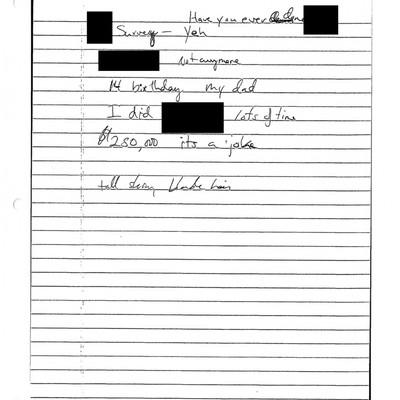 Have you ever done
Survey – Yeh
Not anymore
14 birthday my dad
I did lots of time
$280,000 its a joke
tall skinny blonde hair